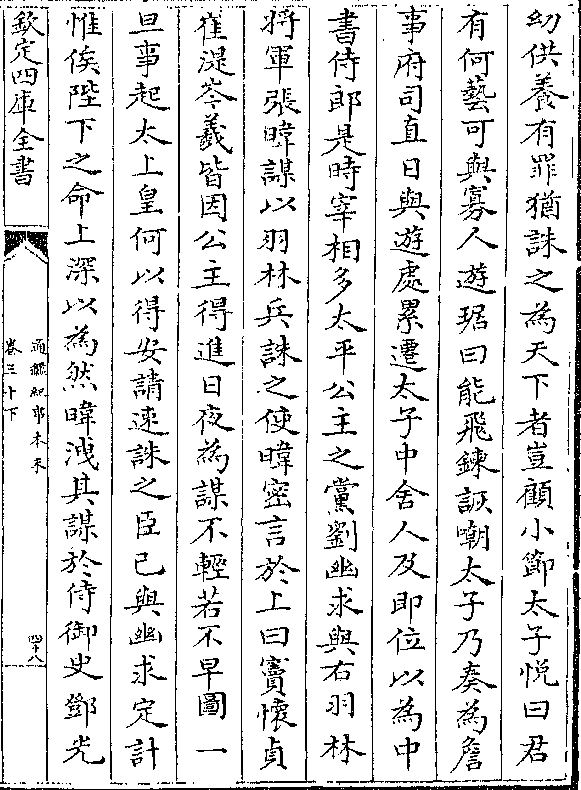 幼供養有罪猶誅之為天下者豈顧小節太子悅曰君
有何藝可與寡人遊琚曰能飛鍊詼嘲太子乃奏為詹
事府司直日與遊處累遷太子中舍人及即位以為中
書侍郎是時宰相多太平公主之黨劉幽求與右羽林
將軍張暐謀以羽林兵誅之使暐密言於上曰竇懷貞
崔湜岑羲皆因公主得進日夜為謀不輕若不早圖一
旦事起太上皇何以得安請速誅之臣已與幽求定計
惟俟陛下之命上深以為然暐洩其謀於侍御史鄧光
欽定四庫全書
通鑑紀事本末
卷三十下
四十八